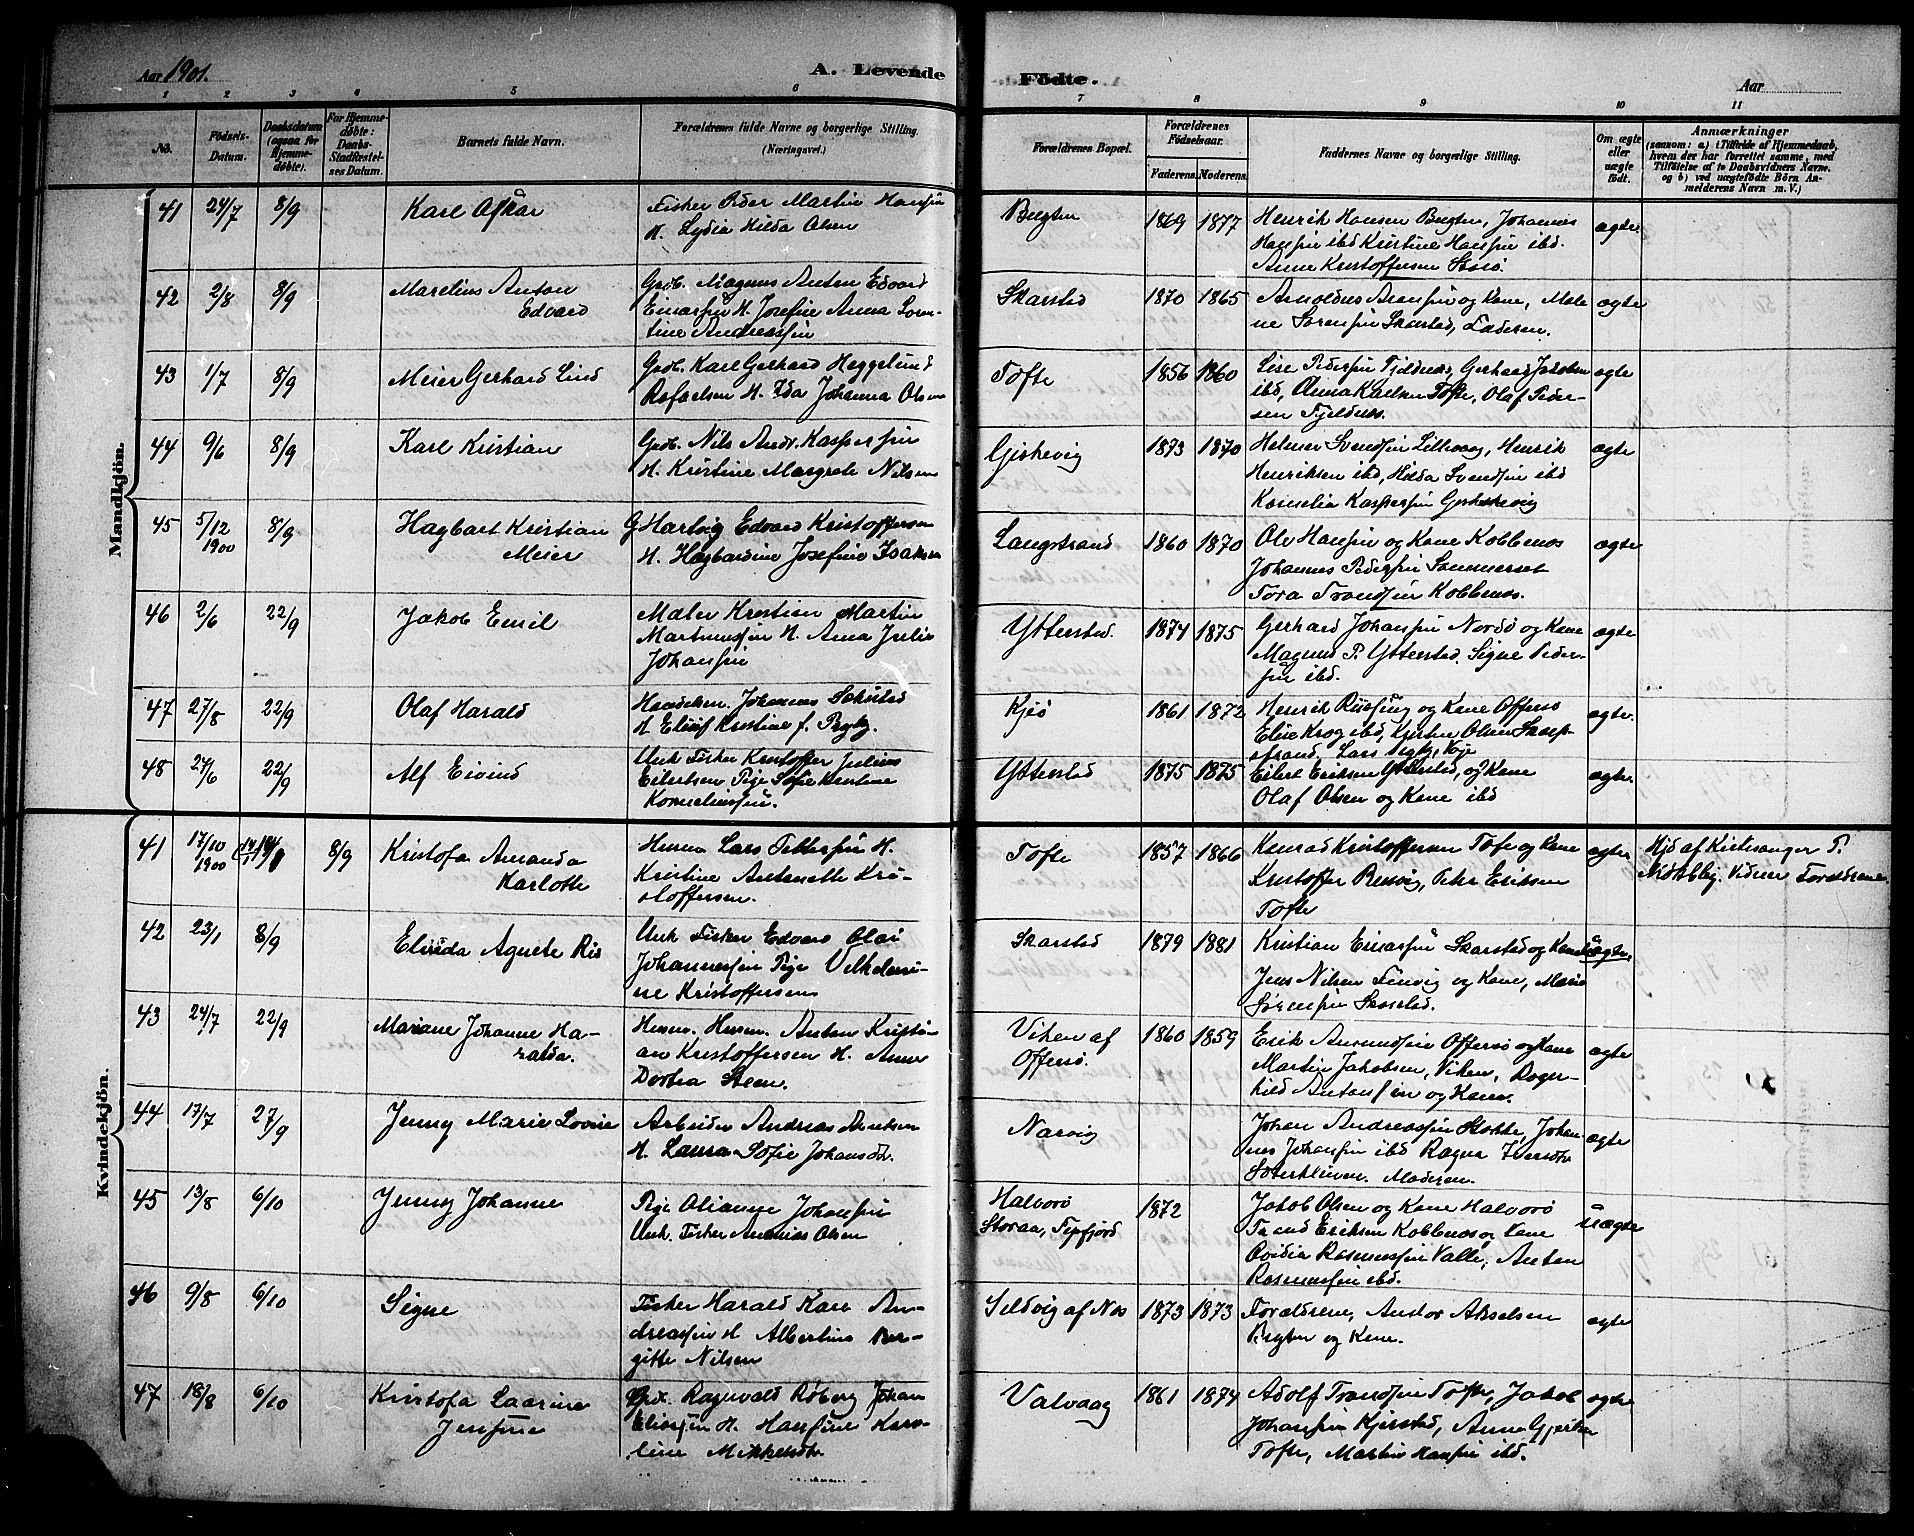 Aar 1901.
A. Levende Födte.
Aar
1 2 3 4 5 6 7 8 9 10 11
No.
Födsels-Datum.
Daabsdatum (ogsaa for Hjemme-döbte).
For Hjemme-döbte: Daabs-Stadfæstel-ses Datum.
Barnets fulde Navn.
Forældrenes fulde Navne og borgerlige Stilling. (Næringsvei.)
Forældrenes Bopæl.
Forældrenes Födselsaar.
Faderens. Moderens.
Faddernes Navne og borgerlige Stilling.
Om ægte eller uægte födt.
Anmærkninger
(saasom: a.) i Tilfælde af Hjemmedaab, hvem der har forrettet samme, med Tilföielse af to Daabsvidners Navne. og b) ved uægtefödte Börn An-melderens Navn m. V.)
Mandkjön.
41 24/7 8/9 Karl Oskar
Fisker Peder Martin Hansen
H. Lydia Hilda Olsen
Bugten 1869 1877
Henrik Hansen Bugten, Johannes
Hansen ibd Kristine Hansen ibd.
Anne Kristoffersen Storö.
ægte
42 2/8 8/9 Marelius Anton
Edvard
Grdb. Magnus Anton Edvard
Einarsen H. Josefine Anna Loren-
tine Andreassen
Skarstad 1870 1865
Arnoldus Arensen og Kone, Male
ne Sörensen Skarstad, Faderen.
ægte
43 1/7 8/9 Meier Gerhard Lind
Grdb. Karl Gerhard Heggelund
Rafaelsen H. Ida Johanna Olsen
Tofte 1856 1860
Lise Pedersen Fjeldnes, Gerhard Jakobsen
ibd, Anna Karlsen Tofte, Olaf Peder-
sen Fjeldnes.
ægte
44 9/6 8/9 Karl Kristian
Grdb. Nils Andr. Kaspersen
H. Kristine Margrete Nilsen
1873 1870
Helmer Svendsen Lillevaag, Henrik
Henriksen ibd, Hilda Svendsen ibd
Kornelia Kaspersen
ægte
45 5/12 1900 8/9 Hagbart Kristian
Meier
G Hartvig Edvard Kristoffersen
H. Hagbardine Josefine Isaksen
Langstrand 1860 1870
Ole Hansen og Kone Kobbenes
Johannes Pedersen Sommerset
Tora Trondsen Kobbenes.
ægte
46 2/6 22/9 Jakob Emil
Maler Kristian Martin
Martinussen H. Anna Julie
Johansen
Ytterstad. 1874 1875
Gerhard Johansen Nordö og Kone
Magnus P. Ytterstad. Signe Peder-
sen ibd.
ægte
47 27/8 22/9 Olaf Harald
Handelsm. Johannes
H. Kristine f. Bygty.
Kjeö 1861 1872
Henrik og Kone Offersö
Elise Krog ibd, Olsen Skarp-
strand, Lars
ægte.
48 24/6 22/9 Alf Eivind
Unk Fisker Kristoffer Julius
Eilertsen Pige Sofie Kristine
Korneliussen.
Ytterstad 1875 1875
Eilert Eriksen Ytterstad, og Kone
Olaf Olsen og Kone ibd
ægte.
Kvindekjön.
41 17/10 1900 8/9 Kristofa Amanda
Karlotte
Husm Lars Pettersen H.
Kristine Antonette Kri-
stoffersen.
Tofte 1857 1866
Konrad Kristoffersen Tofte og Kone
Kristoffer, Peter Eriksen
Tofte
ægte
Hjd af Kirkesanger P.
Vidner Forældrene.
42 23/1 8/9 Elinda Agnete Ris
Unk Fisker Edvard Olai
Johannessen Pige Vilhelmi-
ne Kristoffersen
Skarstad 1879 1881
Kristian Einarsen Skarstad og Kone
Jens Nilsen Finvig og Kone, Marie
Sörensen Skarstad.
uægte.
43 24/7 22/9 Mariane Johanne Ha-
ralda.
Husm. Anton Kristi-
an Kristoffersen H. Anne
Dortea Steen.
Viken af
Offersö 1860 1859
Erik Amundsen Offersö og Kone
Martin Jakobsen, Viken, Roger-
hild Antonsen og Kone.
ægte
44 17/7 27/9 Jenny Marie Lovise
Arbeider Andreas Antsen
H. Laura Sofie Johansdt.
Narvig
Johan Andreassen, Johan-
nes Johansen ibd Ragna Iversdtr
Moderen.
ægte
45 13/8 6/10 Jenny Johanne
Pige Olianne Johansen
Unk. Fisker Andreas Olsen
Halvorö
Storaa, 1872
Jakob Olsen og Kone Halvorö
Trond Eriksen Kobbenes og Kone
Ovidia Rasmussen Valle, Anton
Rasmussen ibd.
uægte
46 9/8 6/10 Signe
Fisker Harald Karl An-
dreassen H Albertine Ber-
gitte Nilsen
Sildvig af Nes 1873 1873
Forældrene, Andor Akselsen
Bugten og Kone.
ægte
47 18/8 6/10 Kristofa Laurine
Jensine
Grdb. Ragnvald Röberg Johan
Eliassen H. Hansine Karo-
line Mikkelsdtr
Valvaag 1861 1874
Adolf Trondsen Tofte, Jakob
Johansen Kjerstad, Anne Gjertsen
Tofte, Martin Hansen ibd.
ægte